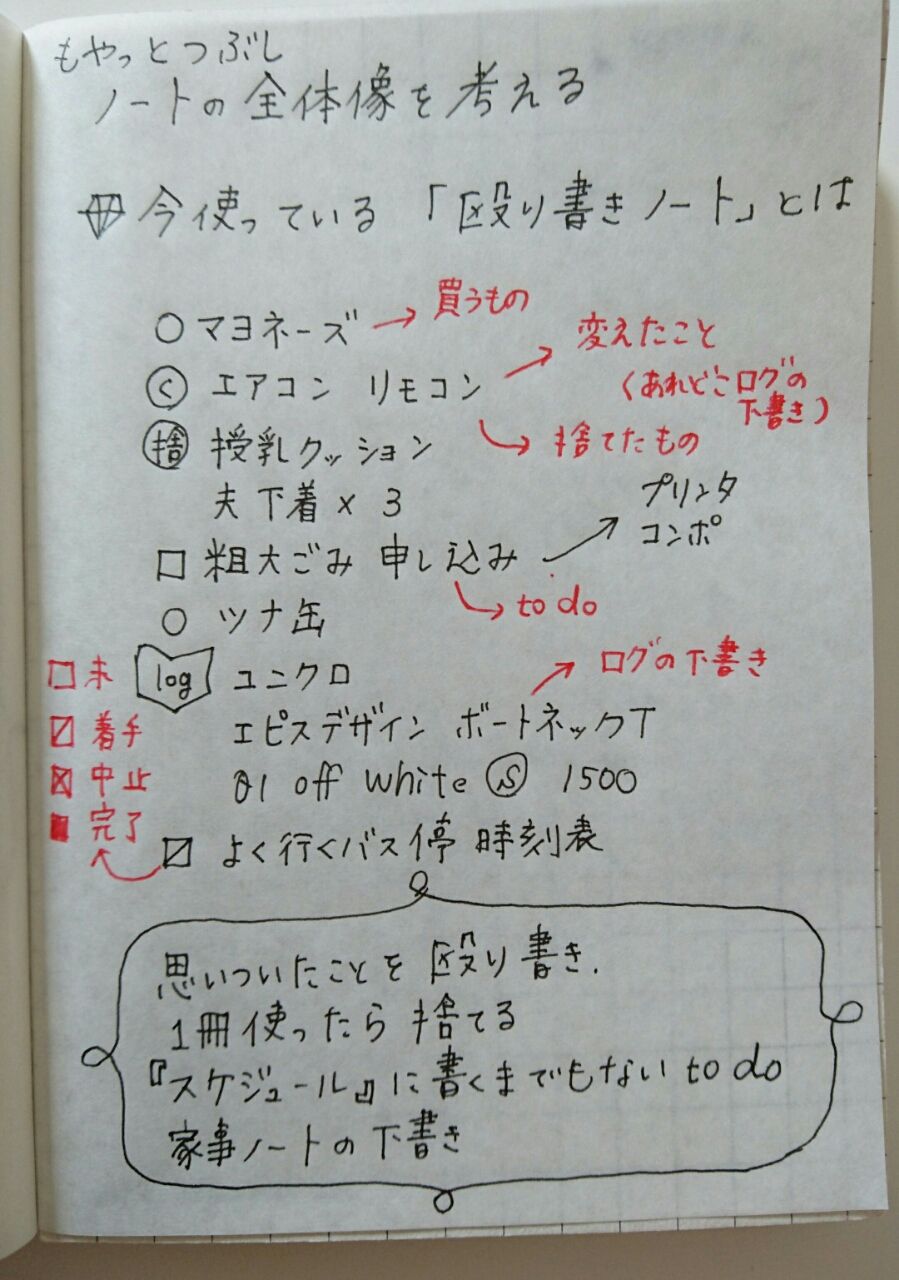 もやっとつぶし
ノートの全体像を考える
今使っている「殴り書きノート」とは
○マヨネーズ → 買うもの
く エアコン リモコン → 変えたこと
(あれどこログの
下書き)
捨 授乳クッション → 捨てたもの
夫下着×3
□ 粗大ごみ 申し込み → プリンタ
コンポ
→ to do
○ ツナ缶
log ユニクロ → ログの下書き
エピスデザイン ボートネックT
01 off white Ⓢ 1500
よく行くバス停 時刻表
□未
着手
中止
■完了
思いついたことを殴り書き.
1冊使ったら捨てる
『スケジュール』に書くまでもない to do
家事ノートの下書き